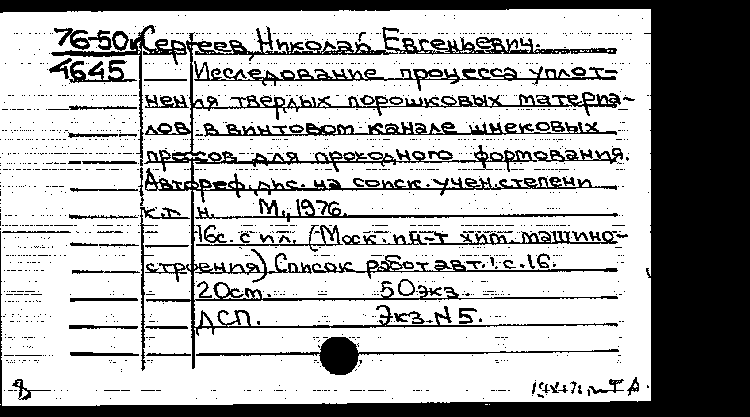 76-50к Сергеев, Николай Евгеньевич.
4645 Исследование процесса уплот-
нения твердых порошковых материа-
лов в винтовом канале шнековых
прессов для проходного формования.
Автореф. дис. на соиск. учен. степени
к.т.н. М., 1976.
16с. с ил. (Моск. ин-т хим. машино-
строения) Список работ авт.: с.16.
20ст. 50экз.
ДСП. Экз. N 5.